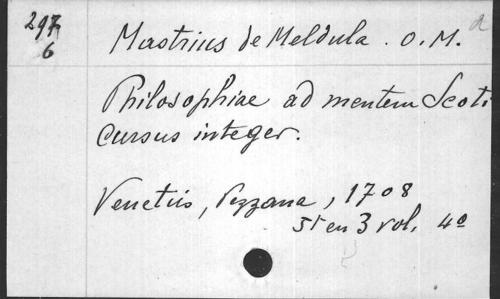 297 Mastrius de Meldula. O. M.
6
Philosophiae ad mentem Scoti
cursus integer.
Venetiis, Pezzana, 1708
5t en 3 vol. 4º